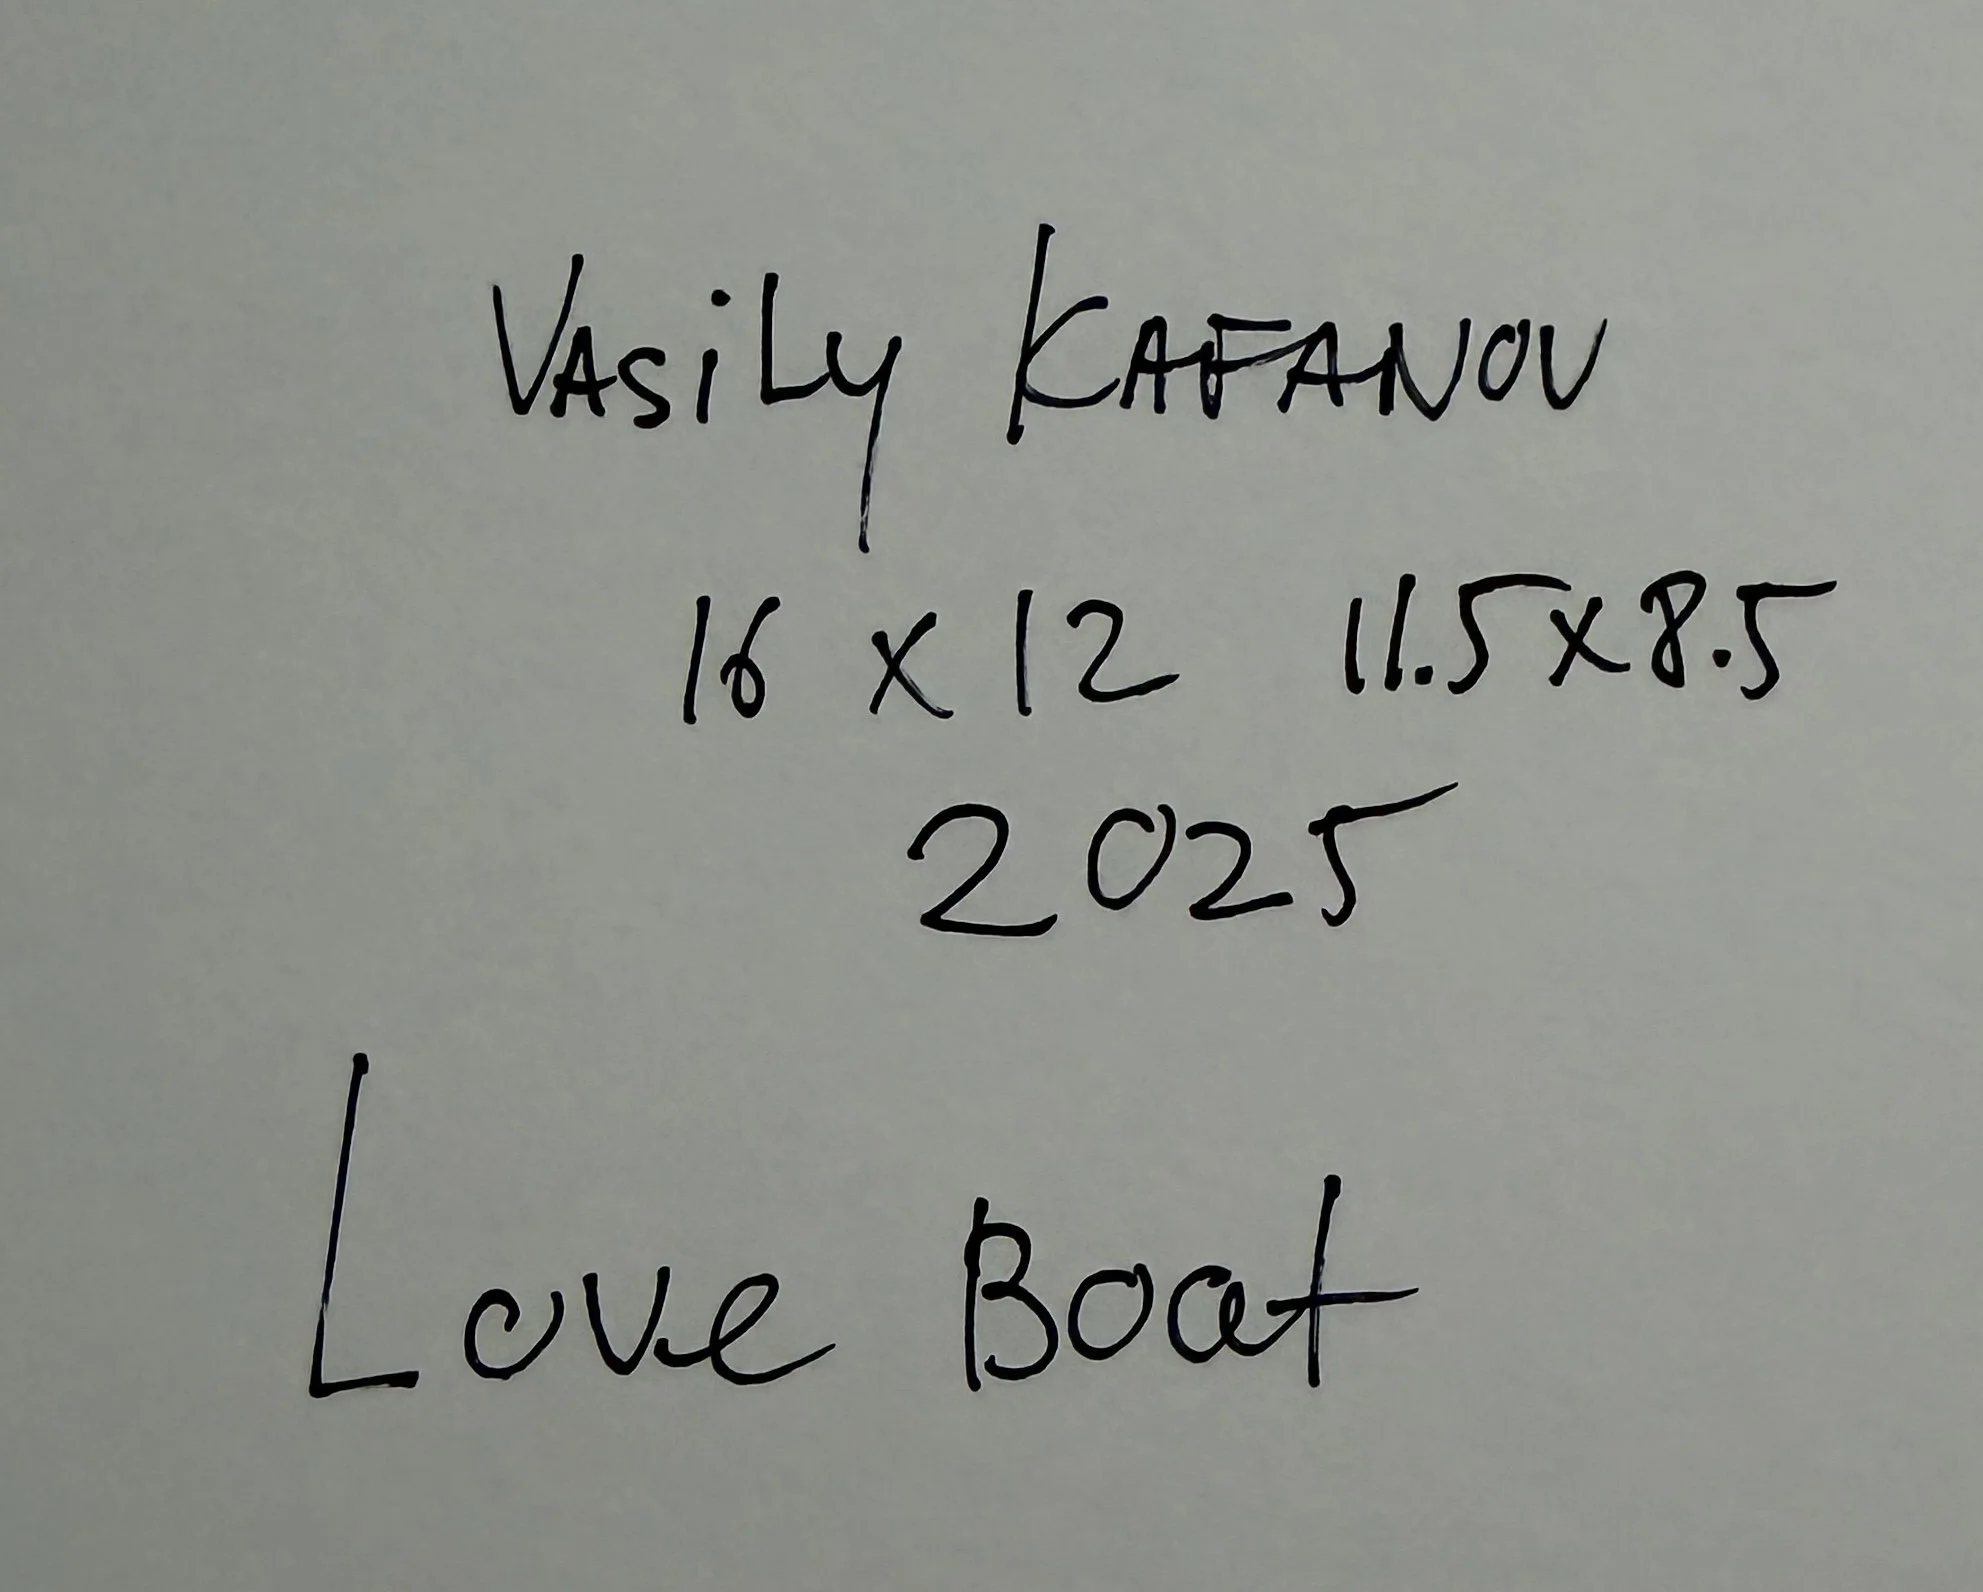 VASiLy KAFANOV
16 x 12 11.5 x 8.5
2025
Love Boat